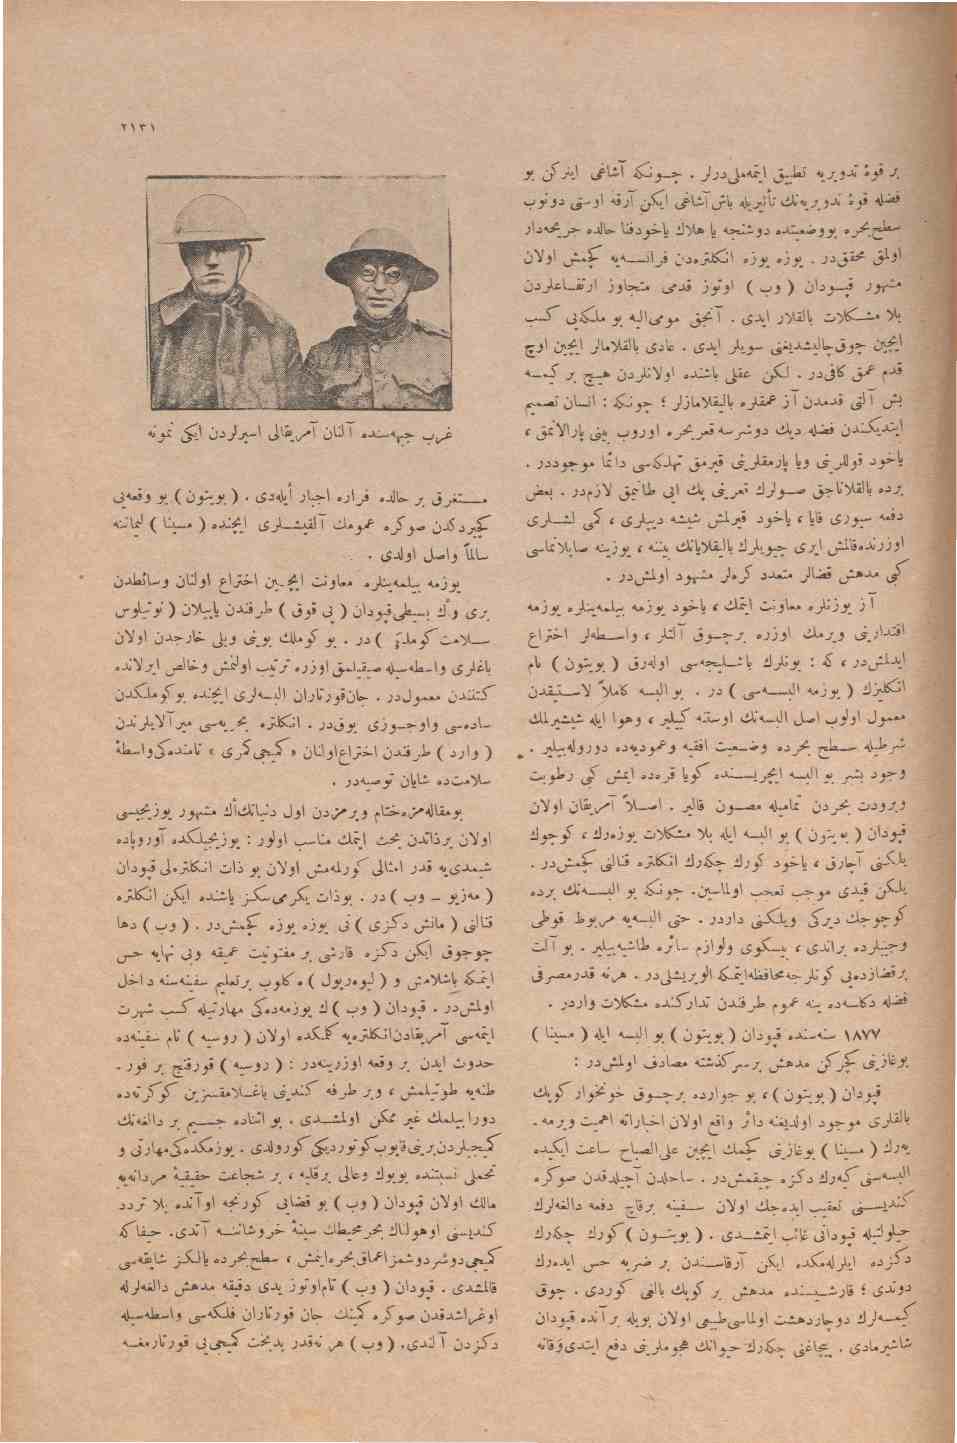 ٢١٣١
بر قوهٔ تدویریه تطبیق ایتمه‌ملی‌درلر . چونکه آشاغی اینرکن بو
فضله قوهٔ تدویریه‌نك تأثیریله باش آشاغی ایکن آرقه اوستی دونوب
سطح بحره بووضعیتده دوشنجه یا هلاك یاخودفنا حالده جریحه‌دار
اولمق محققدر . یوزه یوزه انکلتره‌دن فرانسه‌یه کچمش اولان
مشهور قپودان ( وب ) اوتوز قدمی متجاوز ارتفاعلردن
بلا مشکلات بالقلار ایدی . آنجق مومی‌الیه بو ملکه‌یی کسب
ایچین چوق‌چالیشدیغنی سویلر ایدی . عادی بالقلامالر ایچین اوچ
قدم عمق کافی‌در . لکن عقلی باشنده اولانلردن هیچ بر کیمسه
بش آلتی قدمدن آز عمقلره بالیقلامازلر ؛ چونکه : انسان تصمیم
ایتدیکندن فضله دیك دوشرسه قعر بحره اوروب بینی پارالانمق ،
یاخود قوللرینی ویا پارمقلرینی قیرمق تهلکه‌سی دائما موجوددر .
برده بالقلاناجق صولرك قعرینی پك ایی طانیمق لازمدر . بعض
دفعه سیوری قایا ، یاخود قیرلمش شیشه دیپلری ، کمی لشلری
اوزرنده‌قالمش ایری چیویلرك بالیقلایانك بیننه ، یوزینه صاپلانماسی
کبی مدهش قضالر متعدد کره‌لر مشهود اولمش‌در .
آز یوزنلره معاونت ایتمك ، یاخود یوزمه بیلمه‌ینلره یوزمه
اقتدارینی ویرمك اوزره برچوق آلتلر ، واسطه‌لر اختراع
ایدلمش‌در ، که : بونلرك باشلیجه‌سی اوله‌رق ( بویتون ) نام
انکلیزك ( یوزمه البسه‌سی ) در . بو البسه کاملاً لاستیقدن
معمول اولوب اصل البسه‌نك اوستنه کییلیر ، وهوا ایله شیشیرلمك
شرطیله سطح بحرده وضعیت افقیه وعمودیه‌ده دوروله‌بیلیر .
وجود بشر بو البسه ایچریسنده کویا قره‌ده ایمش کبی رطوبت
وبرودت بحردن تمامیله مصون قالیر . اصلاً آمریقان اولان
قپودان ( بویتون ) بو البسه ایله بلا مشکلات یوزه‌رك ، کوچوك
یلکنی آچارق ، یاخود کورك چکه‌رك انکلتره قنالنی کچمش‌در .
یلکن قیدی موجب تعجب اولماسین. چونکه بو البسه‌نك برده
کوچوجك دیرکی ویلکنی داردر . حتی البسه‌یه مربوط قوطی
وجیبلرده براندی ، بیسکوی ولوازم سائره طاشیه‌بیلیر . بو آلت
برقضازده‌یی کونلرجه محافظه‌ایتمکه الویریشلی‌در . هرنه قدرمصرفی
فضله دکلسه‌ده ینه عموم طرفندن تدارکنده مشکلات واردر .
١٨٧٧ سنه‌سنده قپودان ( بویتون ) بو البسه ایله ( مسینا )
بوغازینی کچرکن مدهش برسرکذشته مصادف اولمش‌در :
قپودان ( بویتون ) ، بو جوارده برچوق خونخوار کوپك
بالقلری موجود اولدیغنه دائر واقع اولان اخباراته اهمیت ویرمه‌ـ
یه‌رك ( مسینا ) بوغازینی کچمك ایچین علی‌الصباح ساعت ایکیده
البسه‌سنی کیه‌رك دکزه چیقمش‌در . ساحلدن آچیلدقدن صوکره
کندیسنی تعقیب ایده‌جك اولان سفینه برقاچ دفعه دالغه‌لرك
حیلولتیله قپودانی غائب ایتمشدی . ( بویتون ) کورك چکه‌رك
دکزده ایلرله‌مکده ایکن آرقاسندن بر ضربه حس ایده‌رك
دوندی ؛ قارشیسنده مدهش بر کوپك بالغی کوردی . چوق
کیمسه‌لرك دوچاردهشت اولماسی طبیعی اولان بویله بر آنده قپودان
شاشیرمادی . بیچاغنی چکه‌رك حیوانك هجوملرینی دفع ایتدی‌وقانه
غرب جبهه‌سنده آلنان آمریقالی اسیرلردن ایکی نمونه
مستغرق بر حالده فراره اجبار ایله‌دی . ( بویتون ) بو وقعه‌یی
کچیردکدن صوکره عمومك آلقیشلری ایچنده ( مسینا ) لیماننه
سالماً واصل اولدی .
یوزمه بیلمه‌ینلره معاونت ایچین اختراع اولنان وسائطدن
بری واك بسیطی‌قپودان ( پی قوق ) طرفندن یاپیلان ( نوتیلوس
سلامت کوملکی ) در . بو کوملك بوینی وبلی خارجدن اولان
باغلری واسطه‌سیله صیقیلمق اوزره ترتیب اولنمش وخالص ایرلانده
کتنندن معمولدر . جان‌قورتاران البسه‌لری ایچنده بوکوملکدن
ساده‌سی واوجوزی یوق‌در . انکلتره بحریه‌سی میرآلایلرندن
( وارد ) طرفندن اختراع‌اولنان « کمیجی‌کمری » نامنده‌کی‌واسطهٔ
سلامت‌ده شایان توصیه‌در .
بومقاله‌مزه‌ختام ویرمزدن اول دنیانك‌اك مشهور یوزیجیسی
اولان برذاتدن بحث ایتمك مناسب اولور : یوزیجیلکده آوروپاده
شیمدی‌یه قدر امثالی کورلمه‌مش اولان بو ذات انکلتره‌لی قپودان
( مه‌زیو - وب ) در . بوذات یکرمی‌سکز یاشنده ایکن انکلتره
قنالنی ( مانش دکزی ) نی یوزه یوزه کچمش‌در . ( وب ) دها
چوجوق ایکن دکزه قارشی بر مفتونیت عمیقه وبی نهایه حس
ایتمکه باشلامش و ( لیوه‌رپول ) ه کلوب برتعلیم سفینه‌سنه داخل
اولمش‌در . قپودان ( وب ) ك یوزمه‌ده‌کی مهارتیله کسب شهرت
ایتمه‌سی آمریقادن‌انکلتره‌یه کلمکده اولان ( روسیه ) نام سفینه‌ده
حدوث ایدن بر وقعه اوزرینه‌در : ( روسیه ) قورقنج بر فور-
طنه‌یه طوتیلمش ، وبر طرفه کندینی باغلامقسزین کوکرته‌ده
دورا بیلمك غیر ممکن اولمشدی . بو اثناده جسیم بر دالغه‌نك
کمیجیلردن‌برینی‌قاپوب‌کوتوردیکی کورولدی . یوزمکده‌کی‌مهارتی و
تحملی نسبتنده بویوك وعالی برقلبه ، بر شجاعت حقیقیهٔ مردانه‌یه
مالك اولان قپودان ( وب ) بو قضایی کورنجه اوآنده بلا تردد
کندیسنی اوهولناك بحر محیطك سینهٔ خروشاننه آتدی. حیفاکه
کمیجی‌دوشردوشمزاعماق‌بحره‌اینمش ، سطح‌بحرده یالکز شاپقه‌سی
قالمشدی . قپودان ( وب ) تام‌اوتوز یدی دقیقه مدهش دالغه‌لرله
اوغراشدقدن صوکره کمینك جان قورتاران فلکه‌سی واسطه‌سیله
دکزدن آلندی. ( وب ) هر نه‌قدر بدبخت کمیجی‌یی قورتارمغسه